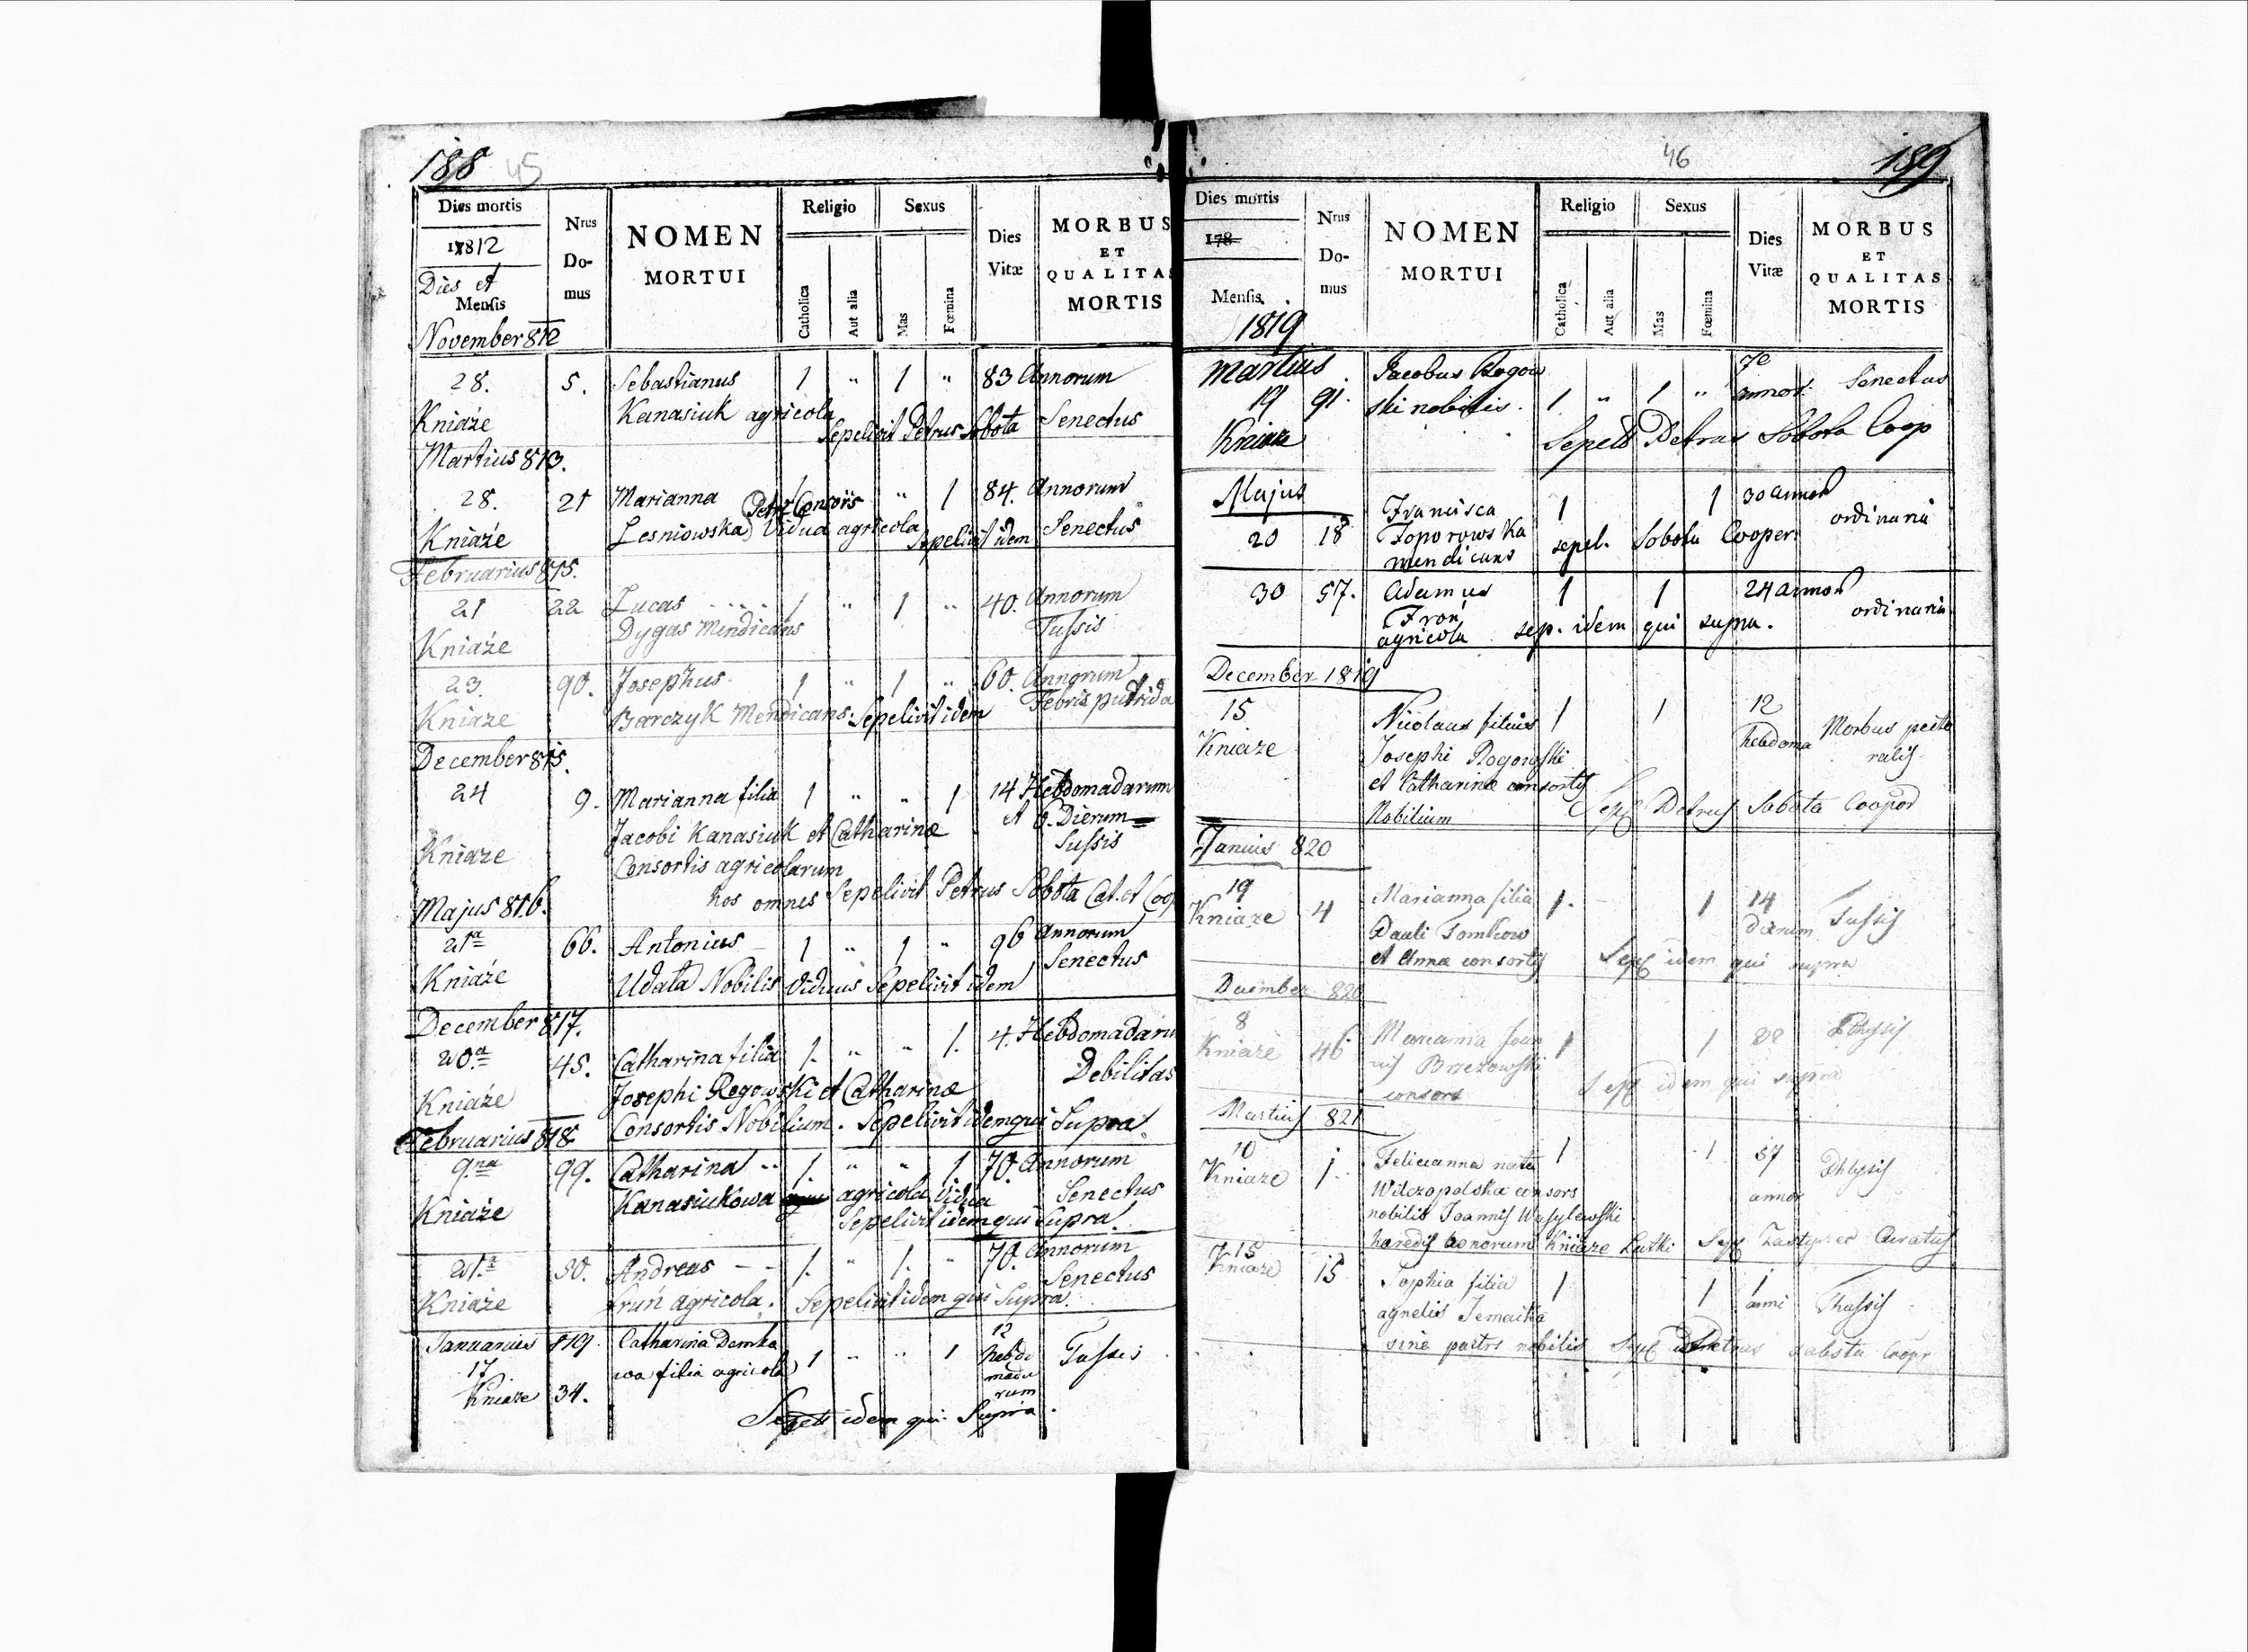 188 45
Dies mortis
Nrus Domus
NOMEN MORTUI
Religio
Catholica
Aut alia
Sexus
Mas
Fœmina
Dies Vitæ
MORBUS ET QUALITAS MORTIS
17812
Dies et
Mensis
November 812
28. 5. Sebastianus 1 " 1 " 83 Annorum
Kniaźe Kanasiuk agricola Sepelivit Petrus Sobota Senectus
Martius 813.
28. 21 Marianna Petri Consors " 1 84. Annorum
Kniaźe Lesniowska Vidua agricola Sepelivit idem Senectus
Februarius 815.
21 22 Lucas 1 " 1 " 40. Annorum
Kniaźe Dygas Mendicans Tussis
23. 90. Josephus 1 " 1 " 60. Annorum
Kniaze Barczyk Mendicans. Sepelivit idem Febris putrida
December 815.
24 9. Marianna filia 1 " " 1 14 Hebdomadarum
Jacobi Kanasiuk et Catharinæ et 6. Dierum
Kniaze Consortis agricolarum Tussis
hos omnes Sepelivit Petrus Sobota Cat. et Coop
Majus 816.
21a 66. Antonius 1 " 1 " 96 Annorum
Kniaźe Udata Nobilis Viduus Sepelivit idem Senectus
December 817.
20.a 45. Catharina filia 1. " " 1. 4. Hebdomadaru
Kniaźe Josephi Rogowski et Catharinæ Debilitas
Consortis Nobilium. Sepelivit idem qui Supra
Februarius 818
9.na 99. Catharina 1. " " 1 70. Annorum
Kniaźe Kanasiukowa agricola Vidua Senectus
Sepelivit idem qui Supra.
21.a 30. Andreas 1. " 1. " 70. Annorum
Kniaźe Fruń agricola. Sepelivit idem qui Supra. Senectus
Januarius 819. Catharina Demko
17 wa filia agricola 1 " " 1 12 hebdo
Kniaze 34. madarum Tussis
Sepel idem qui Supra.
46 189
Dies mortis
Nrus Domus
NOMEN MORTUI
Religio
Catholica
Aut alia
Sexus
Mas
Fœmina
Dies Vitæ
MORBUS ET QUALITAS MORTIS
178
Mensis
1819
Martius Jacobus Rogow
19 91. ski nobilis. 1 " 1 " annor. Senectus
Kniaze Sepel Petrus Sobota Coop
Majus
Francisca 1 1 30 annor
20 18 Toporowska sepel. Sobota Cooper. ordinaria
mendicans
30 57. Adamus 1 1 24 annor
Froń ordinaria
agricola sep. idem qui supra.
December 1819
15 Nicolaus filius 1 1 12
Kniaze Josephi Rogowski hebdoma Morbus pecto
et Catharinæ consortis ralis.
Nobilium Sepel Petrus Sobota Cooper
Junius 820
19 Marianna filia 1. 1 14
Kniaze 4 Pauli Tomkow dierum Tussis
et Annæ consortis Sepel idem qui supra
December 820
8
Kniaze 46 Marianna Joan 1 1
nis Brzezowski Sepel idem qui supra
consors
Martius 821
10 Felicianna nata 1 1 37
Kniaze 1. Wilczopolska consors annor Phtysis
nobilis Joannis Wasylewski
hæredis bonorum Kniaze Sepel Curatus
15
Kniaze 15 Sophia filia 1 1 1
anni
sine patre nobilis Sepel Petrus Sobota Coopr